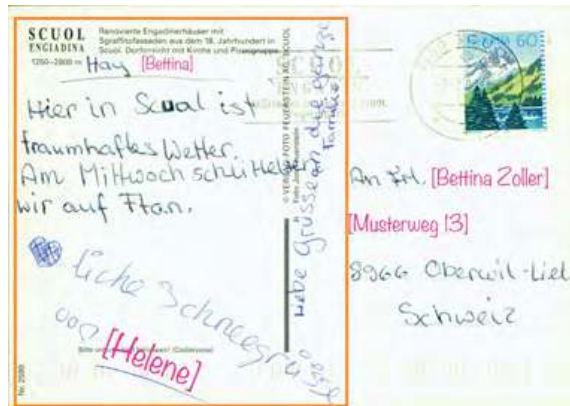 SCUOL
ENGIADINA
1250–2800 m
Renovierte Engadinerhäuser mit
Sgraffitofassaden aus dem 18. Jahrhundert in
Scuol. Dorfansicht mit Kirche und Pisocgruppe
Hay [Bettina]
Hier in Scual ist
traumhaftes Wetter.
Am Mittwoch
wir auf Ftan.
liche Schneegrüsse
von [Helene]
Nr. 2590
© VERLAG + FOTO FEUERSTEIN AG, SCUOL
Liebe Grüsse an die ganze
Familie
SCUOL
60
An Frl. [Bettina Zoller]
[Musterweg 13]
8966 Oberwil-Liel
Schweiz